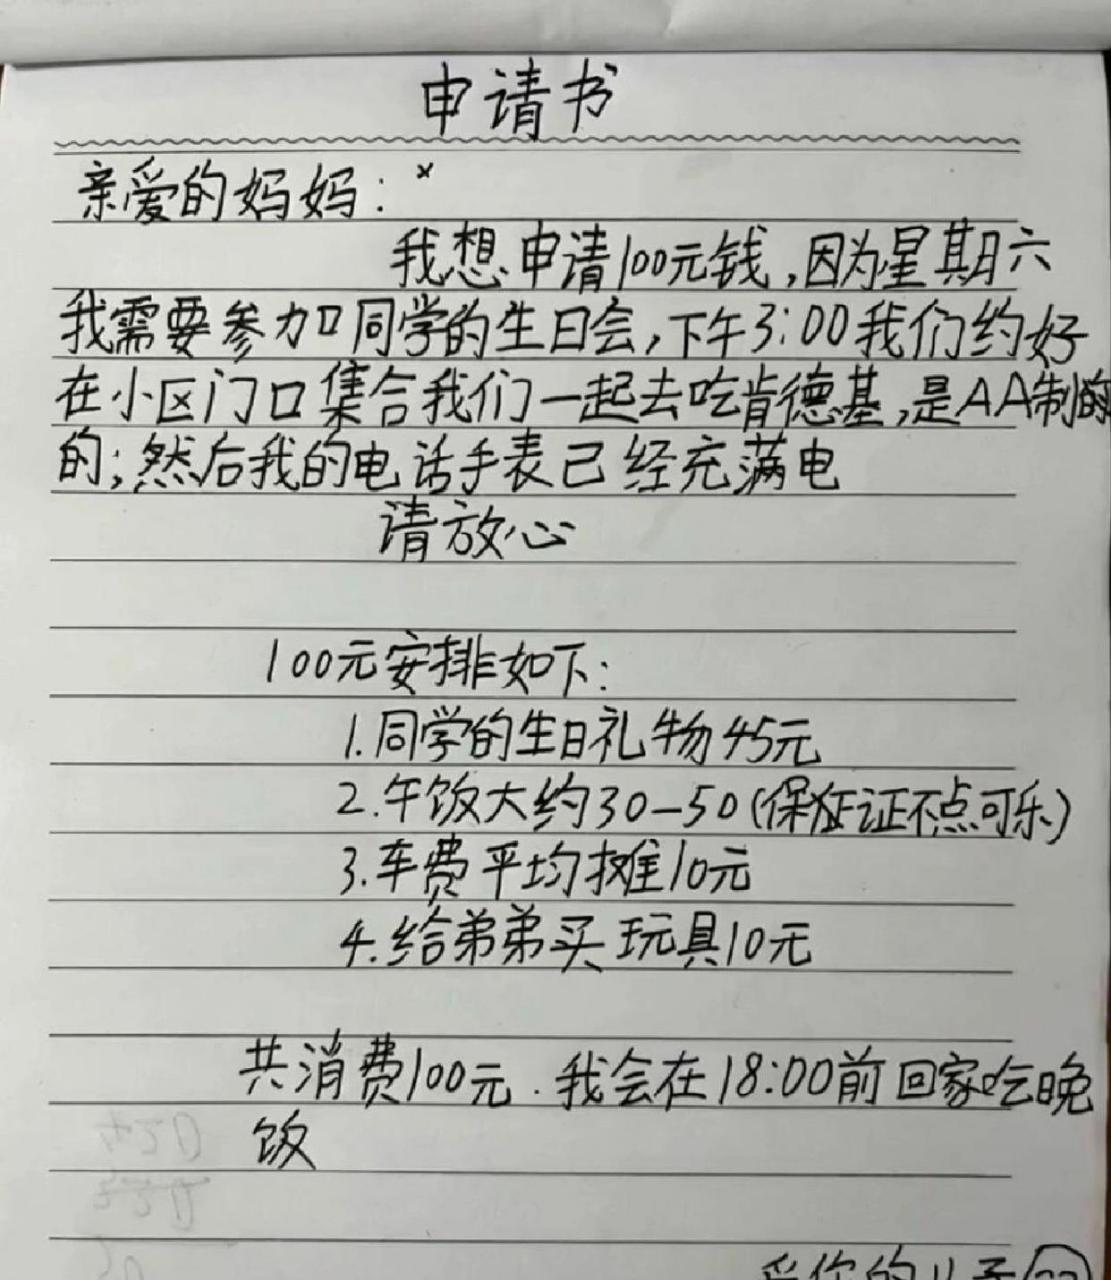 申请书
亲爱的妈妈：
我想申请100元钱,因为星期六
我需要参加同学的生日会,下午3:00我们约好
在小区门口集合我们一起去吃肯德基,是AA制的
的;然后我的电话手表已经充满电
请放心
100元安排如下:
1.同学的生日礼物45元
2.午饭大约30-50(保证不点可乐)
3.车费平均摊10元
4.给弟弟买玩具10元
共消费100元.我会在18:00前回家吃晚
饭
爱你的儿子